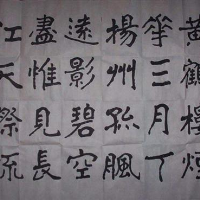 黃鶴樓煙
華三月下
揚州孤颿
遠影碧空
盡惟見長
江天際流